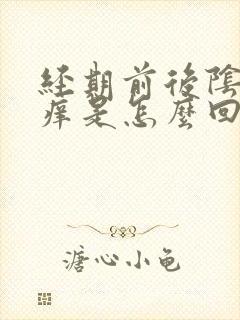 經期前後陰
癢是怎麼回
溏心小龟